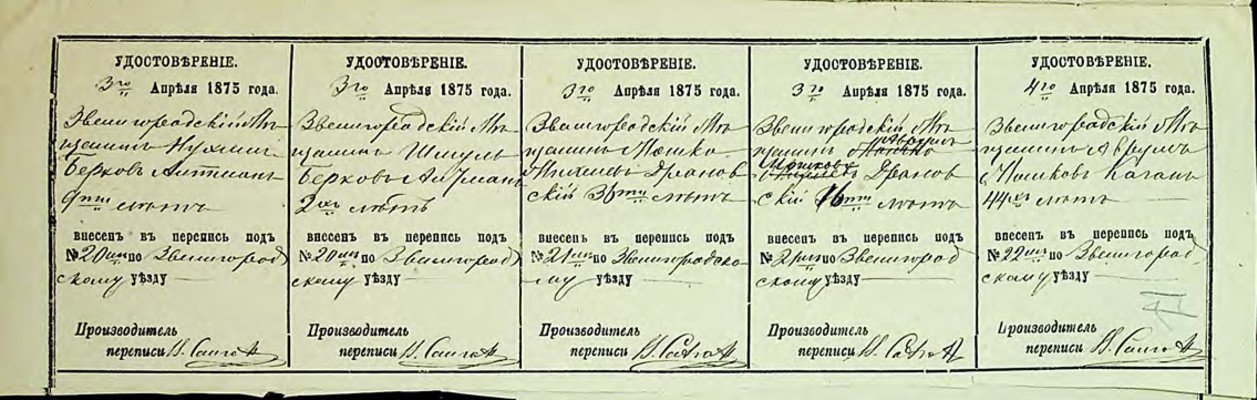 УДОСТОВѢРЕНІЕ.
3го Апрѣля 1875 года.
Звенигородскій Мѣ-
щанинъ Нухимъ
Берковъ
9ти лѣтъ
внесенъ въ перепись подъ
№ 20 по Звенигород
скому уѣзду
Производитель
переписи
УДОСТОВѢРЕНІЕ.
3го Апрѣля 1875 года.
Звенигородскій Мѣ-
щанинъ Шмуль
Берковъ
2хъ лѣтъ
внесенъ въ перепись подъ
№ 20 по Звенигород
скому уѣзду
Производитель
переписи
УДОСТОВѢРЕНІЕ.
3го Апрѣля 1875 года.
Звенигородскій Мѣ-
щанинъ Мошко
Драков
скій 36ти лѣтъ
внесенъ въ перепись подъ
№ 21 по Звенигородско-
му уѣзду
Производитель
переписи
УДОСТОВѢРЕНІЕ.
3го Апрѣля 1875 года.
Звенигородскій Мѣ-
щанинъ Аврумъ
Мошковъ Драков
скій 16ти лѣтъ
внесенъ въ перепись подъ
№ 21 по Звенигород
скому уѣзду
Производитель
переписи
УДОСТОВѢРЕНІЕ.
4го Апрѣля 1875 года.
Звенигородскій Мѣ-
щанинъ Аврумъ
Мошковъ Каганъ
44хъ лѣтъ
внесенъ въ перепись подъ
№ 22 по Звенигород
скому уѣзду
Производитель
переписи